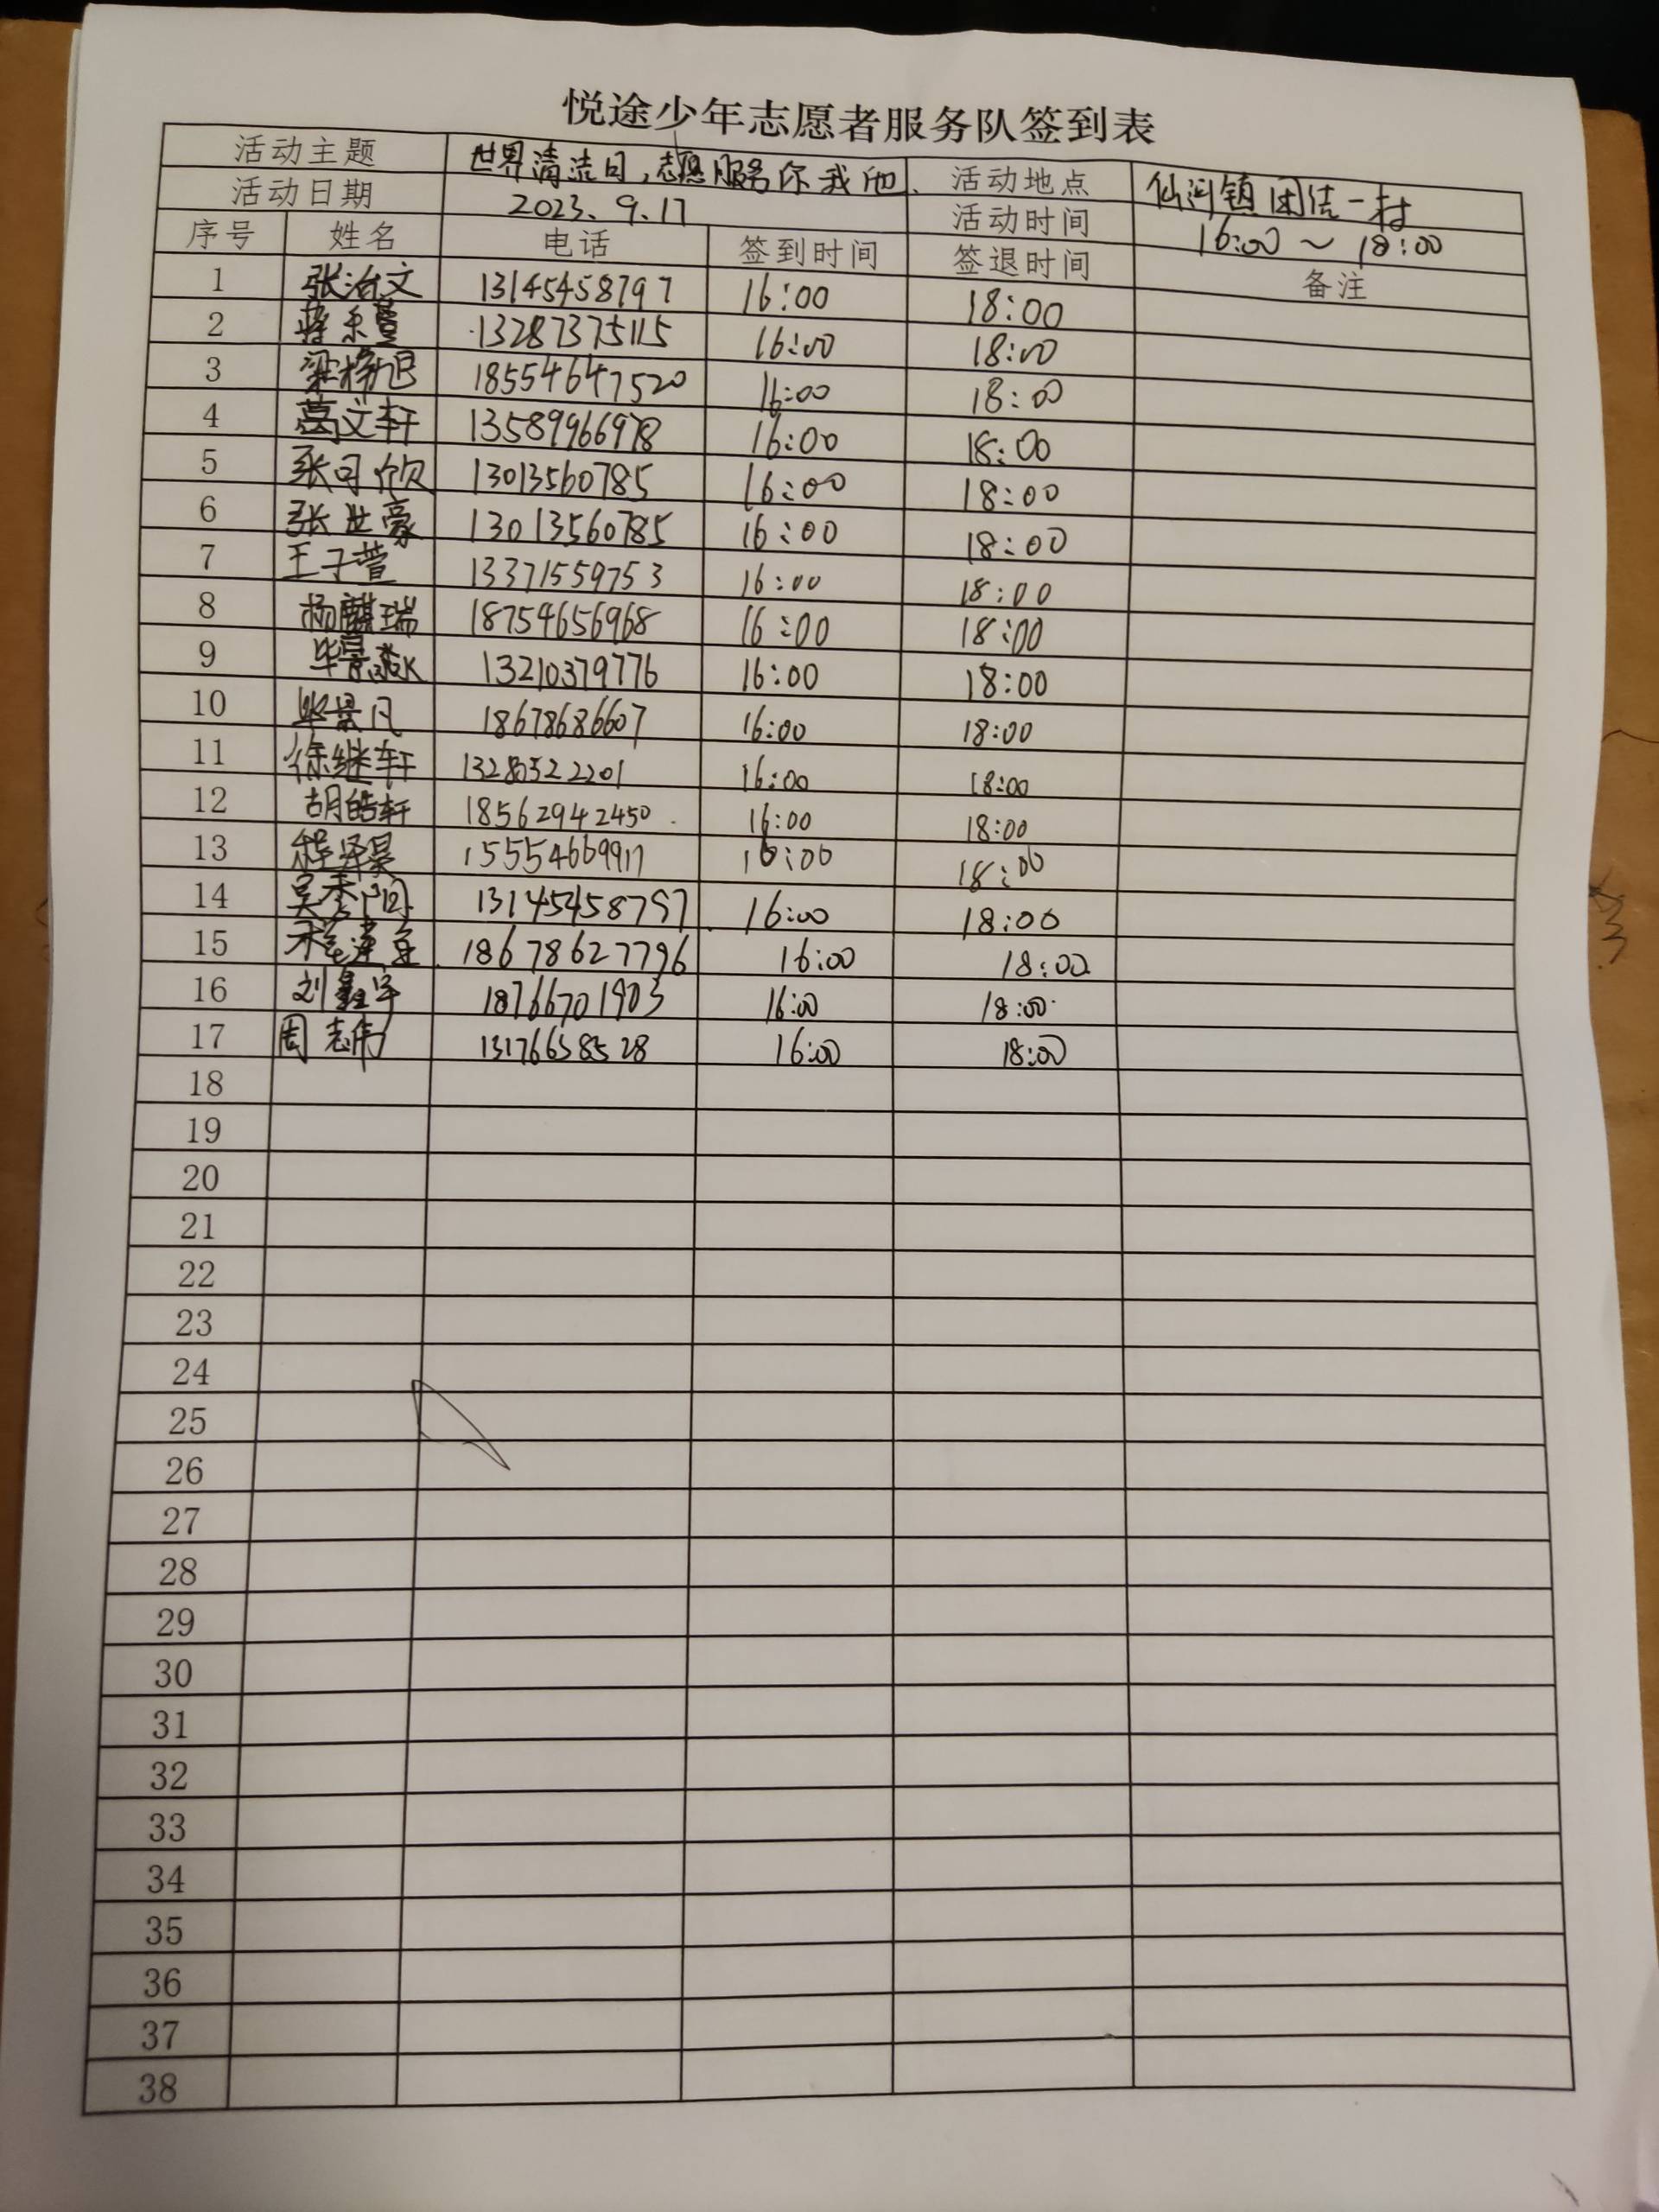 悦途少年志愿者服务队签到表
活动主题 世界清洁日，志愿服务你我他. 活动地点 仙河镇团结一村
活动日期 2023.9.17 活动时间 16:00～18:00
序号 姓名 电话 签到时间 签退时间 备注
1 张治文 13145458797 16:00 18:00
2 13287375115 16:00 18:00
3 18554647520 16:00 18:00
4 葛文轩 13589966978 16:00 18:00
5 张可欣 13013560785 16:00 18:00
6 张世豪 13013560785 16:00 18:00
7 王子萱 13371559753 16:00 18:00
8 杨麒瑞 18754656968 16:00 18:00
9 13210379776 16:00 18:00
10 毕景凡 18678686607 16:00 18:00
11 徐继轩 16:00 18:00
12 胡皓轩 18562942450 16:00 18:00
13 程泽昊 15554669917 16:00 18:00
14 13145458797 16:00 18:00
15 18678627796 16:00 18:00
16 刘鑫宇 18766701903 16:00 18:00
17 周志伟 13176658528 16:00 18:00
18
19
20
21
22
23
24
25
26
27
28
29
30
31
32
33
34
35
36
37
38